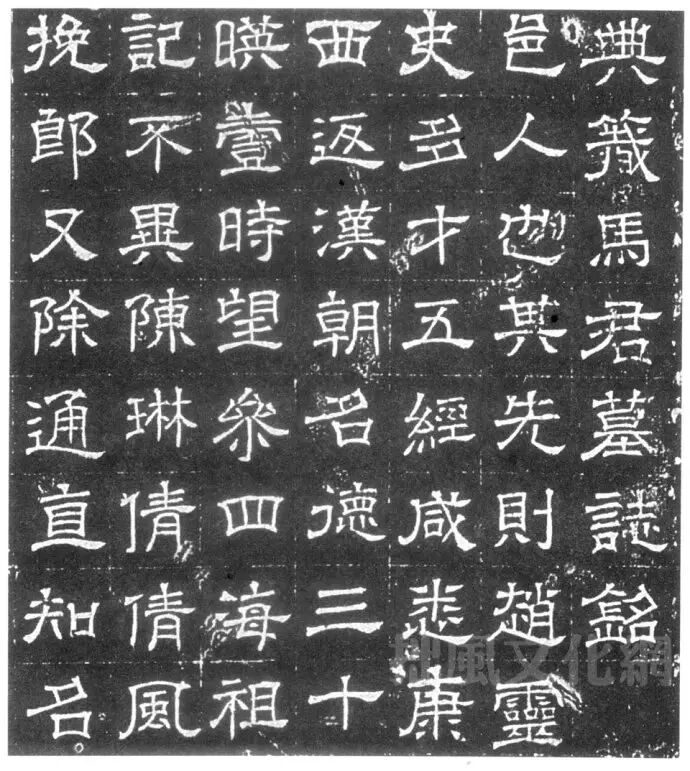 典籤馬君墓誌銘
邑人也其先則趙靈
史多才五經咸述康
西返漢朝名德三十
暎壹時望衆四海祖
記不異陳琳倩倩風
挽郎又除通直知名
風文化網